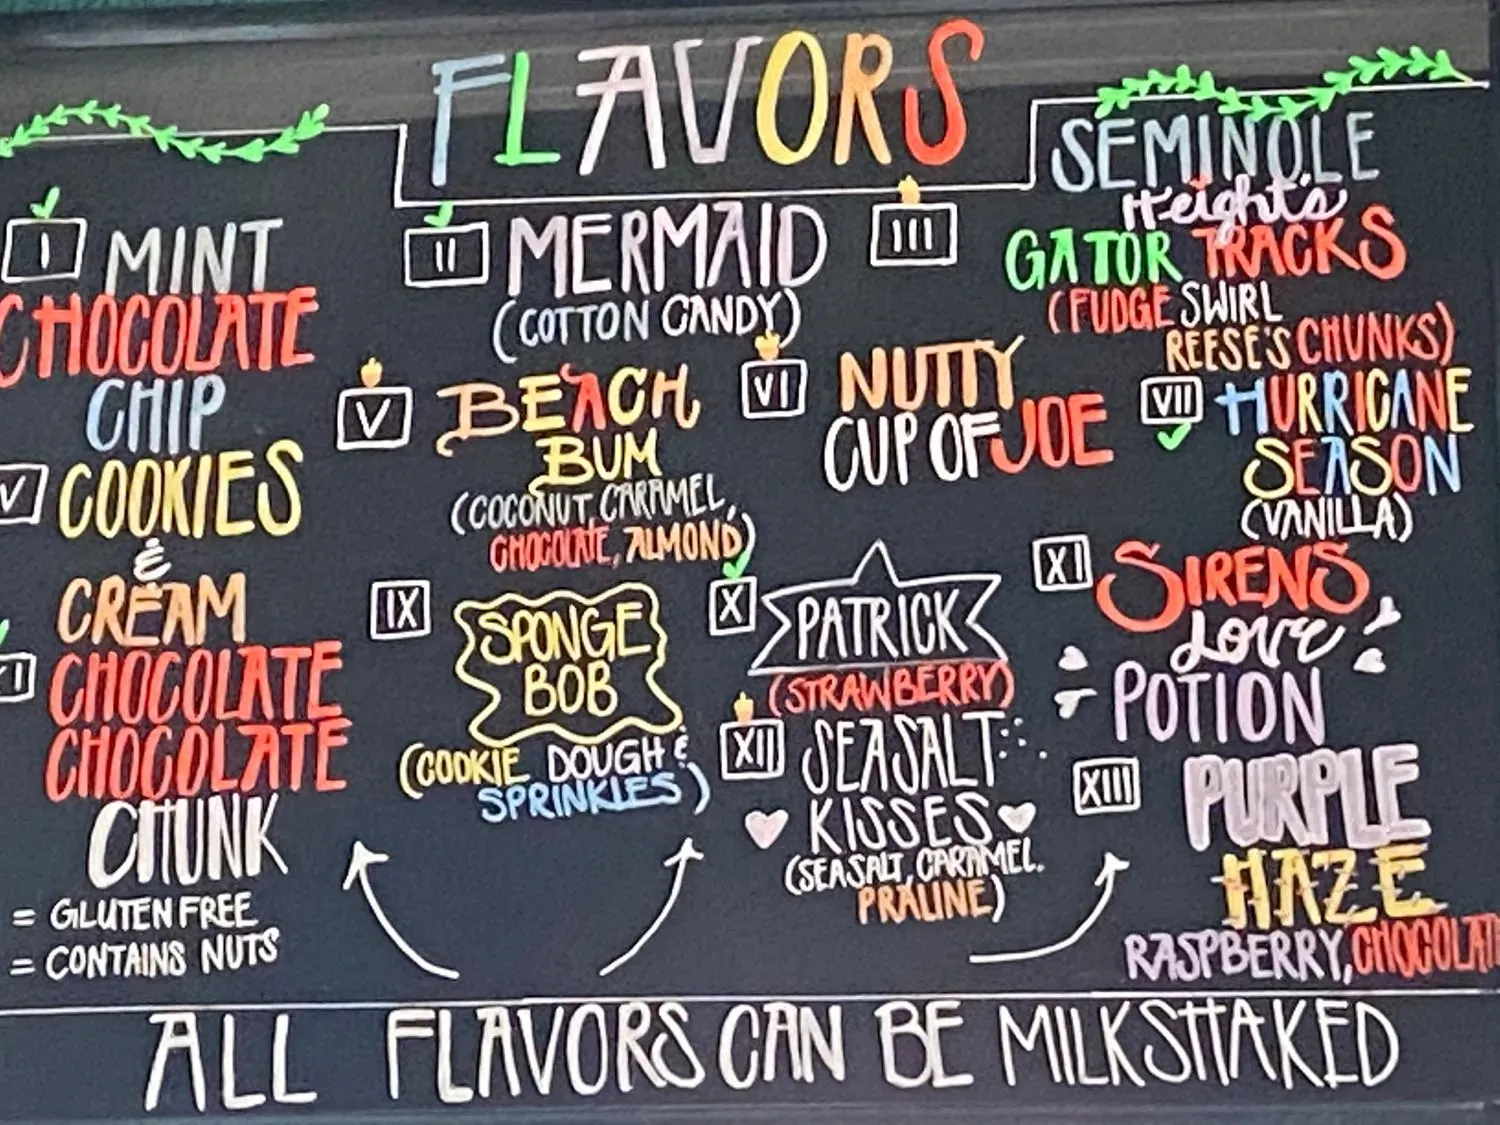 FLAVORS
I MINT
CHOCOLATE
CHIP
V COOKIES
&
CREAM
CHOCOLATE
CHOCOLATE
CHUNK
= GLUTEN FREE
= CONTAINS NUTS
II MERMAID
(COTTON CANDY)
V BEACH
BUM
(COCONUT, CARAMEL,
CHOCOLATE, ALMOND)
IX SPONGE
BOB
(COOKIE DOUGH &
SPRINKLES)
III SEMINOLE
Heights
GATOR TRACKS
(FUDGE SWIRL
REESE'S CHUNKS)
VI NUTTY
CUP OF JOE
VII HURRICANE
SEASON
(VANILLA)
X PATRICK
(STRAWBERRY)
XI SIRENS
LOVE
POTION
XII SEASALT
KISSES
(SEASALT, CARAMEL,
PRALINE)
XIII PURPLE
HAZE
RASPBERRY, CHOCOLAT
ALL FLAVORS CAN BE MILKSHAKED